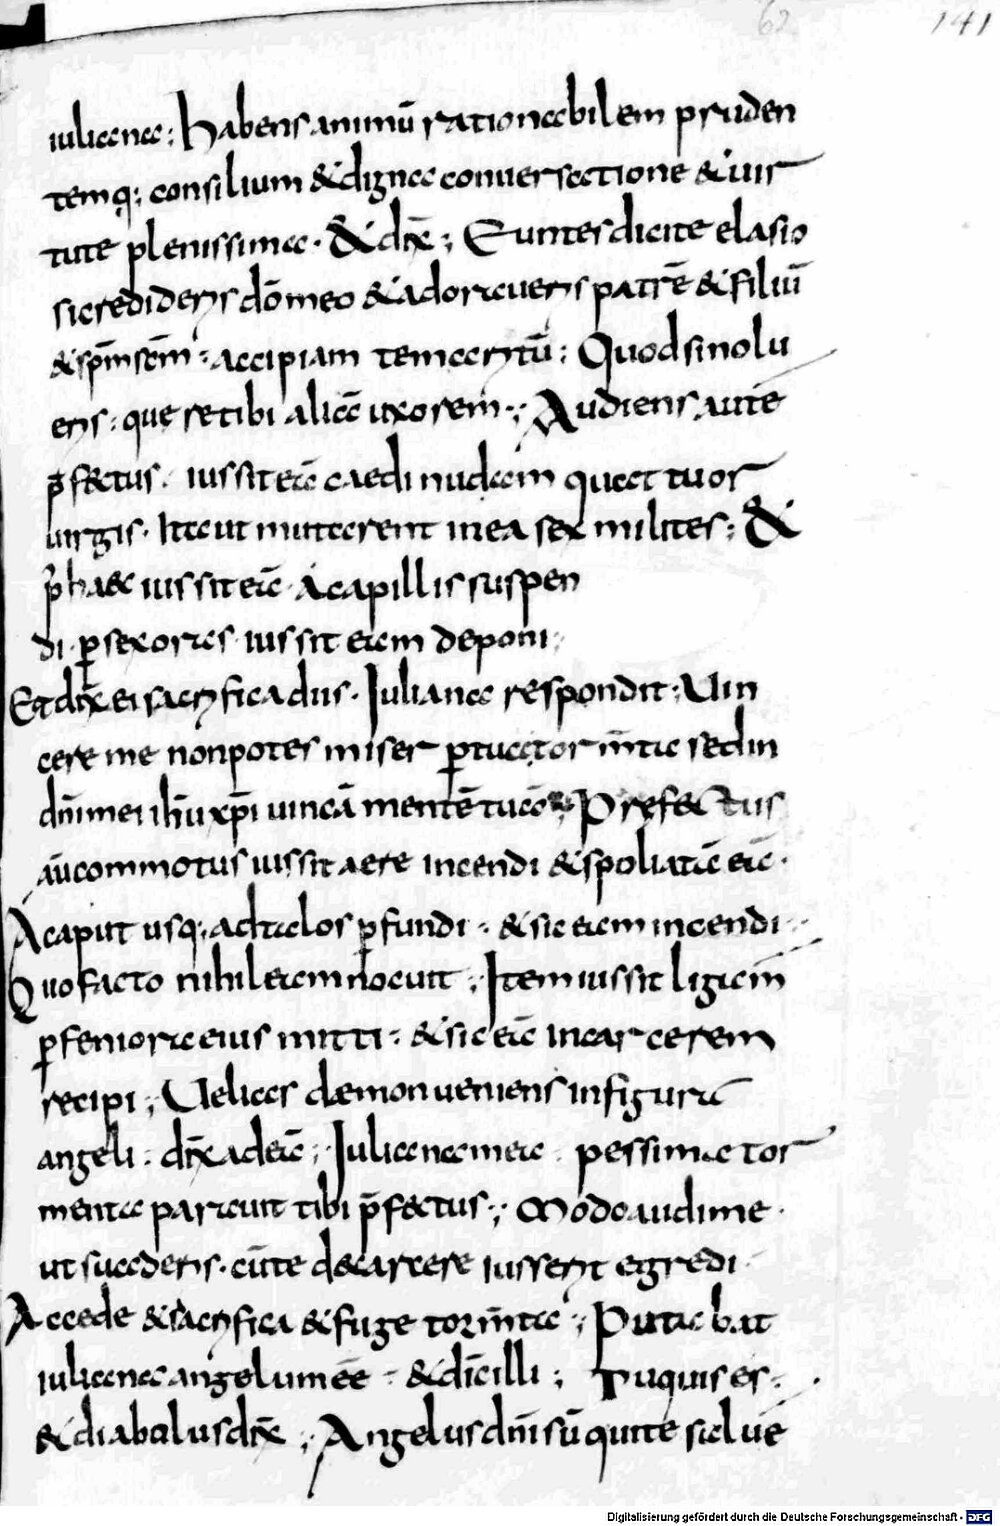 62 141
iuliana; habens animū rationabilem pruden
temq; consilium & digna conuersatione & uir
tute plenissima. & dix̄; Euntes dicite elasio
si credideris dōmeo & adoraueris patrē & filiū
& sp̄m sc̄m; accipiam te maritū; Quod si nolu
eris; quęre tibi aliā uxorem; Audiens autē
p̄fectus. iussit eā caedi nudam quattuor
uirgis. Ita ut mutarent in ea sex milites; &
p̄ haec iussit eā. A capillis suspen
di. p̱ sex oras iussit eam deponi;
Et dix̄ ei sacryfica dīis. Iuliana respondit; Uin
cere me non potes miser p̱ tua torm̄ta sed in
dn̄i mei ih̄u xp̄i uincā mentē tuā; Prefectus
aū commotus iussit aere incendi & spoliatā eā.
A caput usq; ad talos p̱fundi; & sic eam incendi.
Quo facto nihil eam nocuit; Item iussit ligam̄
p̱ femora eius mitti; & sic eā in carcerem
recipi; Uelias dæmon ueniens in figura
angeli. dix̄ ad eā; Iuliana mea. pessima tor
menta parauit tibi p̄fectus; Modo audi me.
ut sualeris. cū te de carcere iusserit egredi.
Accede & sacryfica & fuge torm̄ta; Putabat
iuliana angelum eē; & dīc illi; Tu quis es;
& diabolus dix̄; Angelus dn̄i sū qui te saluē